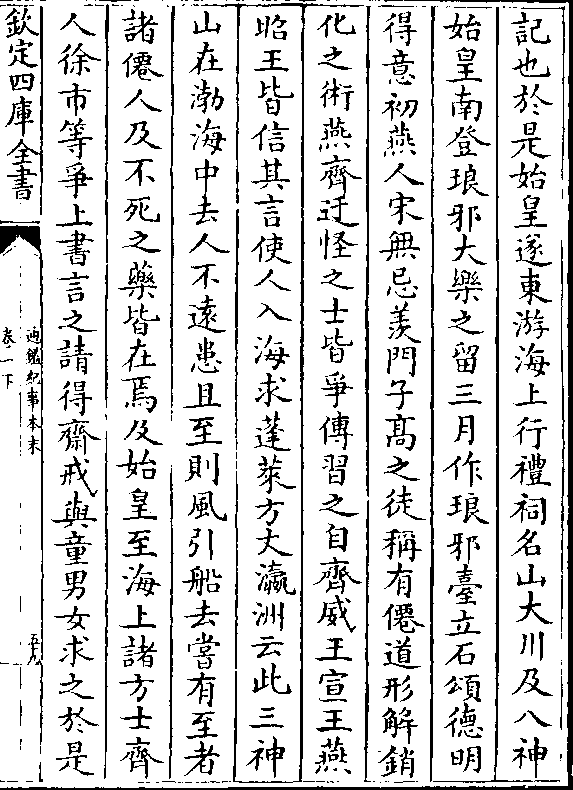 記也於是始皇遂東游海上行禮祠名山大川及八神
始皇南登琅邪大樂之留三月作琅邪臺立石頌德明
得意初燕人宋無忌羨門子髙之徒稱有僊道形解銷
化之術燕齊迂怪之士皆爭傳習之自齊威王宣王燕
昭王皆信其言使人入海求蓬萊方丈瀛洲云此三神
山在渤海中去人不遠患且至則風引船去嘗有至者
諸僊人及不死之藥皆在焉及始皇至海上諸方士齊
人徐巿等爭上書言之請得齋戒與童男女求之於是
欽定四庫全書
通鑑紀事本末
卷一下
五十九